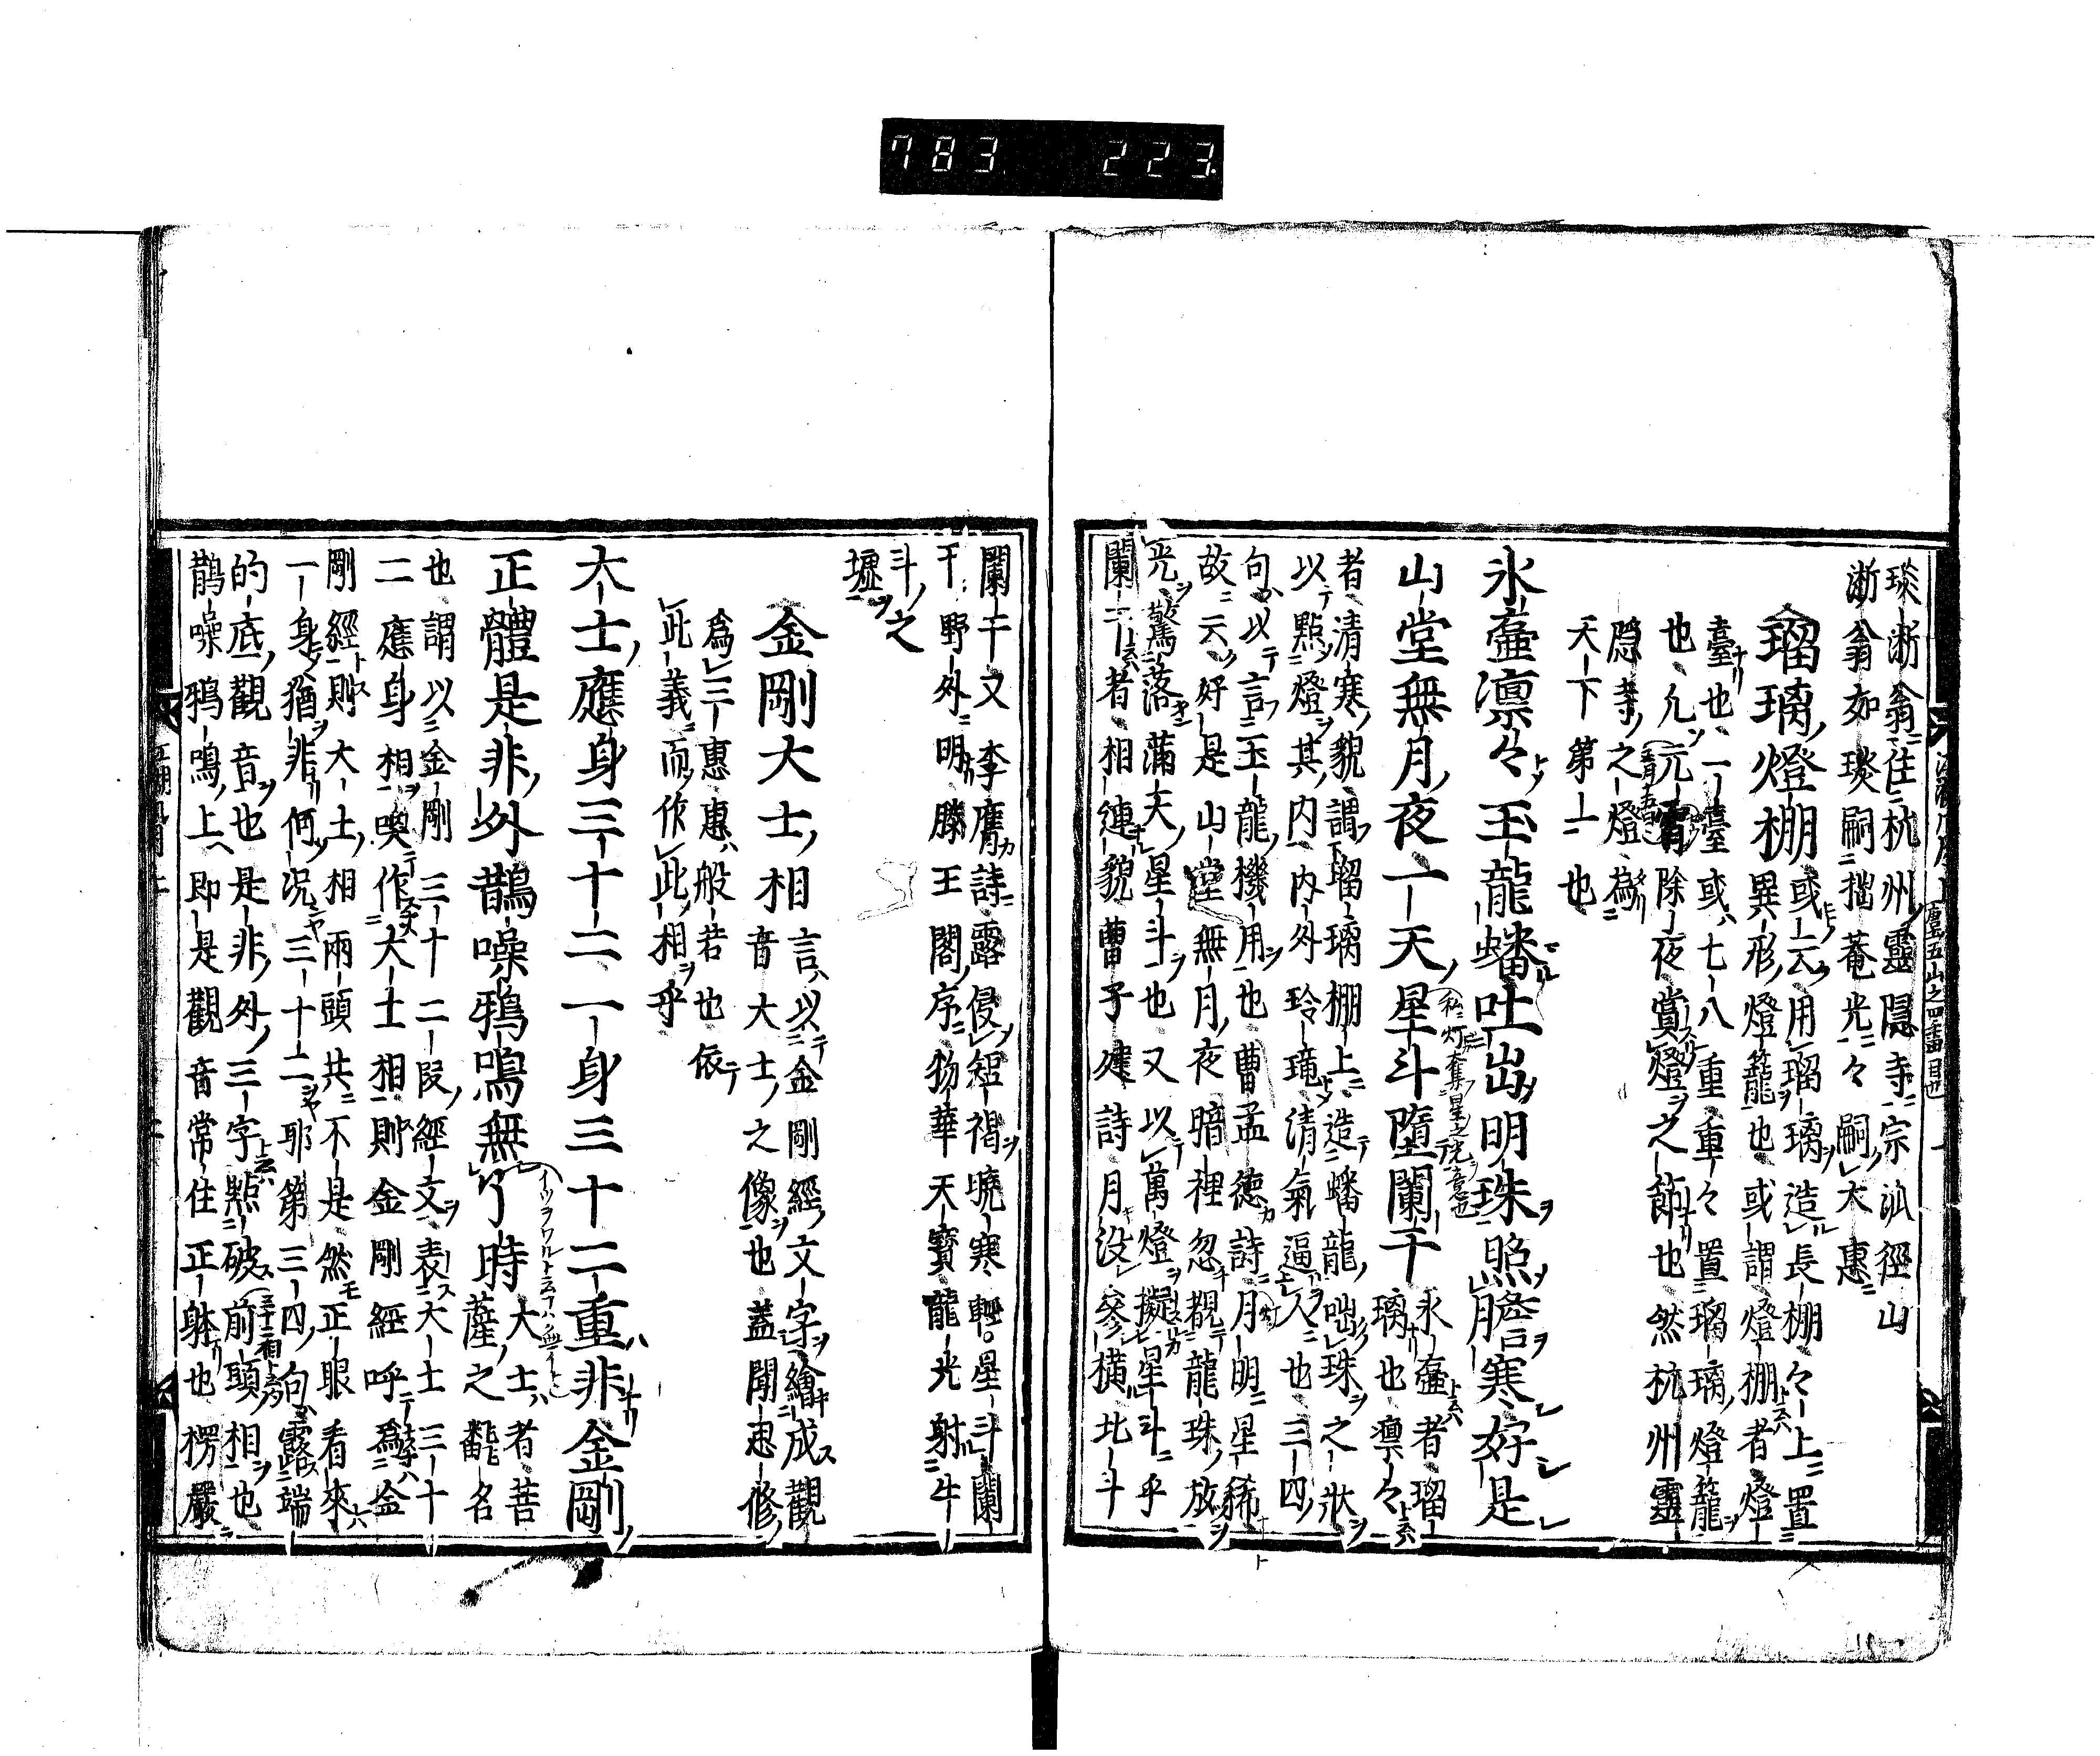 783 223
琰浙翁住杭州靈隱寺宗派徑山
浙翁如琰嗣拙菴光々嗣大惠
瑠璃燈棚
或云用瑠璃造長棚々上置
異形燈籠也或謂燈棚者燈
臺也一臺或七八重重々置瑠璃燈籠
也凡元宵除夜賞燈之節也然杭州靈
隱寺之燈為
天下第一也
氷壷凛々玉龍蟠吐出明珠照膽寒好是
山堂無月夜一天星斗墮闌干
氷壷者瑠
璃也凛々
者清寒貌謂瑠璃棚上造蟠龍咄珠之狀
以點燈其内内外玲瓏清氣逼人也三四
句以言玉龍機用也曹孟德詩月明星稀
故云好是山堂無月夜暗裡忽覩龍珠放
光驚落滿天星斗也又以萬燈擬星斗乎
闌干者相連貌曹子建詩月没參橫北斗
闌干又李鷹詩露侵裋褐曉寒輕星斗闌
干野外明滕王閣序物華天寶龍光射牛
斗之
墟
金剛大士相
言以金剛經文字繪成觀
音大士之像也蓋聞思修
為三惠惠般若也依
此義而作此相乎
大士應身三十二一身三十二重非金剛
正體是非外鵲噪鴉鳴無了時
大士者菩
薩之翻名
也謂以金剛三十二段經文表大士三十
二應身相喚作大士相則金剛經呼為金
剛經則大士相兩頭共不是然正眼看來
一身猶非何况三十二耶第三四句露端
的底觀音也是非外三字點破前頭相也
鵲噪鴉鳴上即是觀音常住正躰也楞嚴